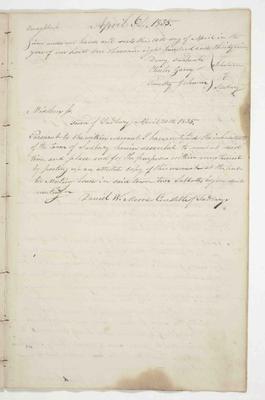 April 6th, 1835.
Given under our hands and seals this 6th day of April in the
year of our Lord one thousand eight hundred and thirty five
Drury Fairbank
Selectmen
of
Sudbury
Middlesex ss
Town of Sudbury April 20th 1835,
Pursuant to the within warrant I have notified the inhabitants
of the Town of Sudbury herein described to meet at said
time and place and for the purposes within mentioned
by posting up an attested copy of this warrant at the
Meeting house in said town two Sabbaths before said
meeting
Daniel Wickerson Constable of Sudbury